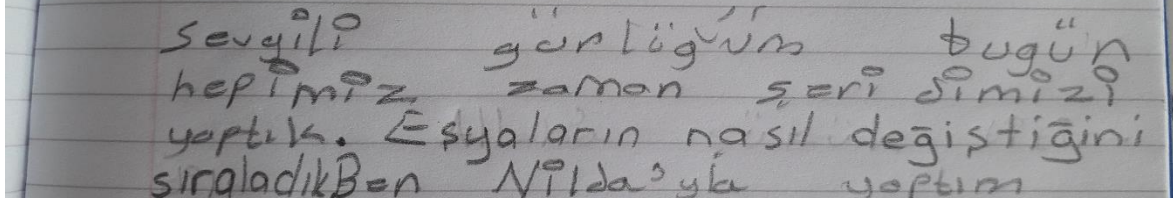 Sevgili günlüğüm bugün
hepimiz zaman şeridimizi
yaptık. Eşyaların nasıl değiştiğini
sıraladıkBen Nilda'yla yaptım